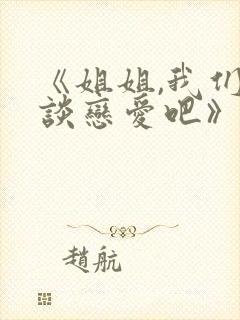 《姐姐,我们
談戀愛吧》
趙航